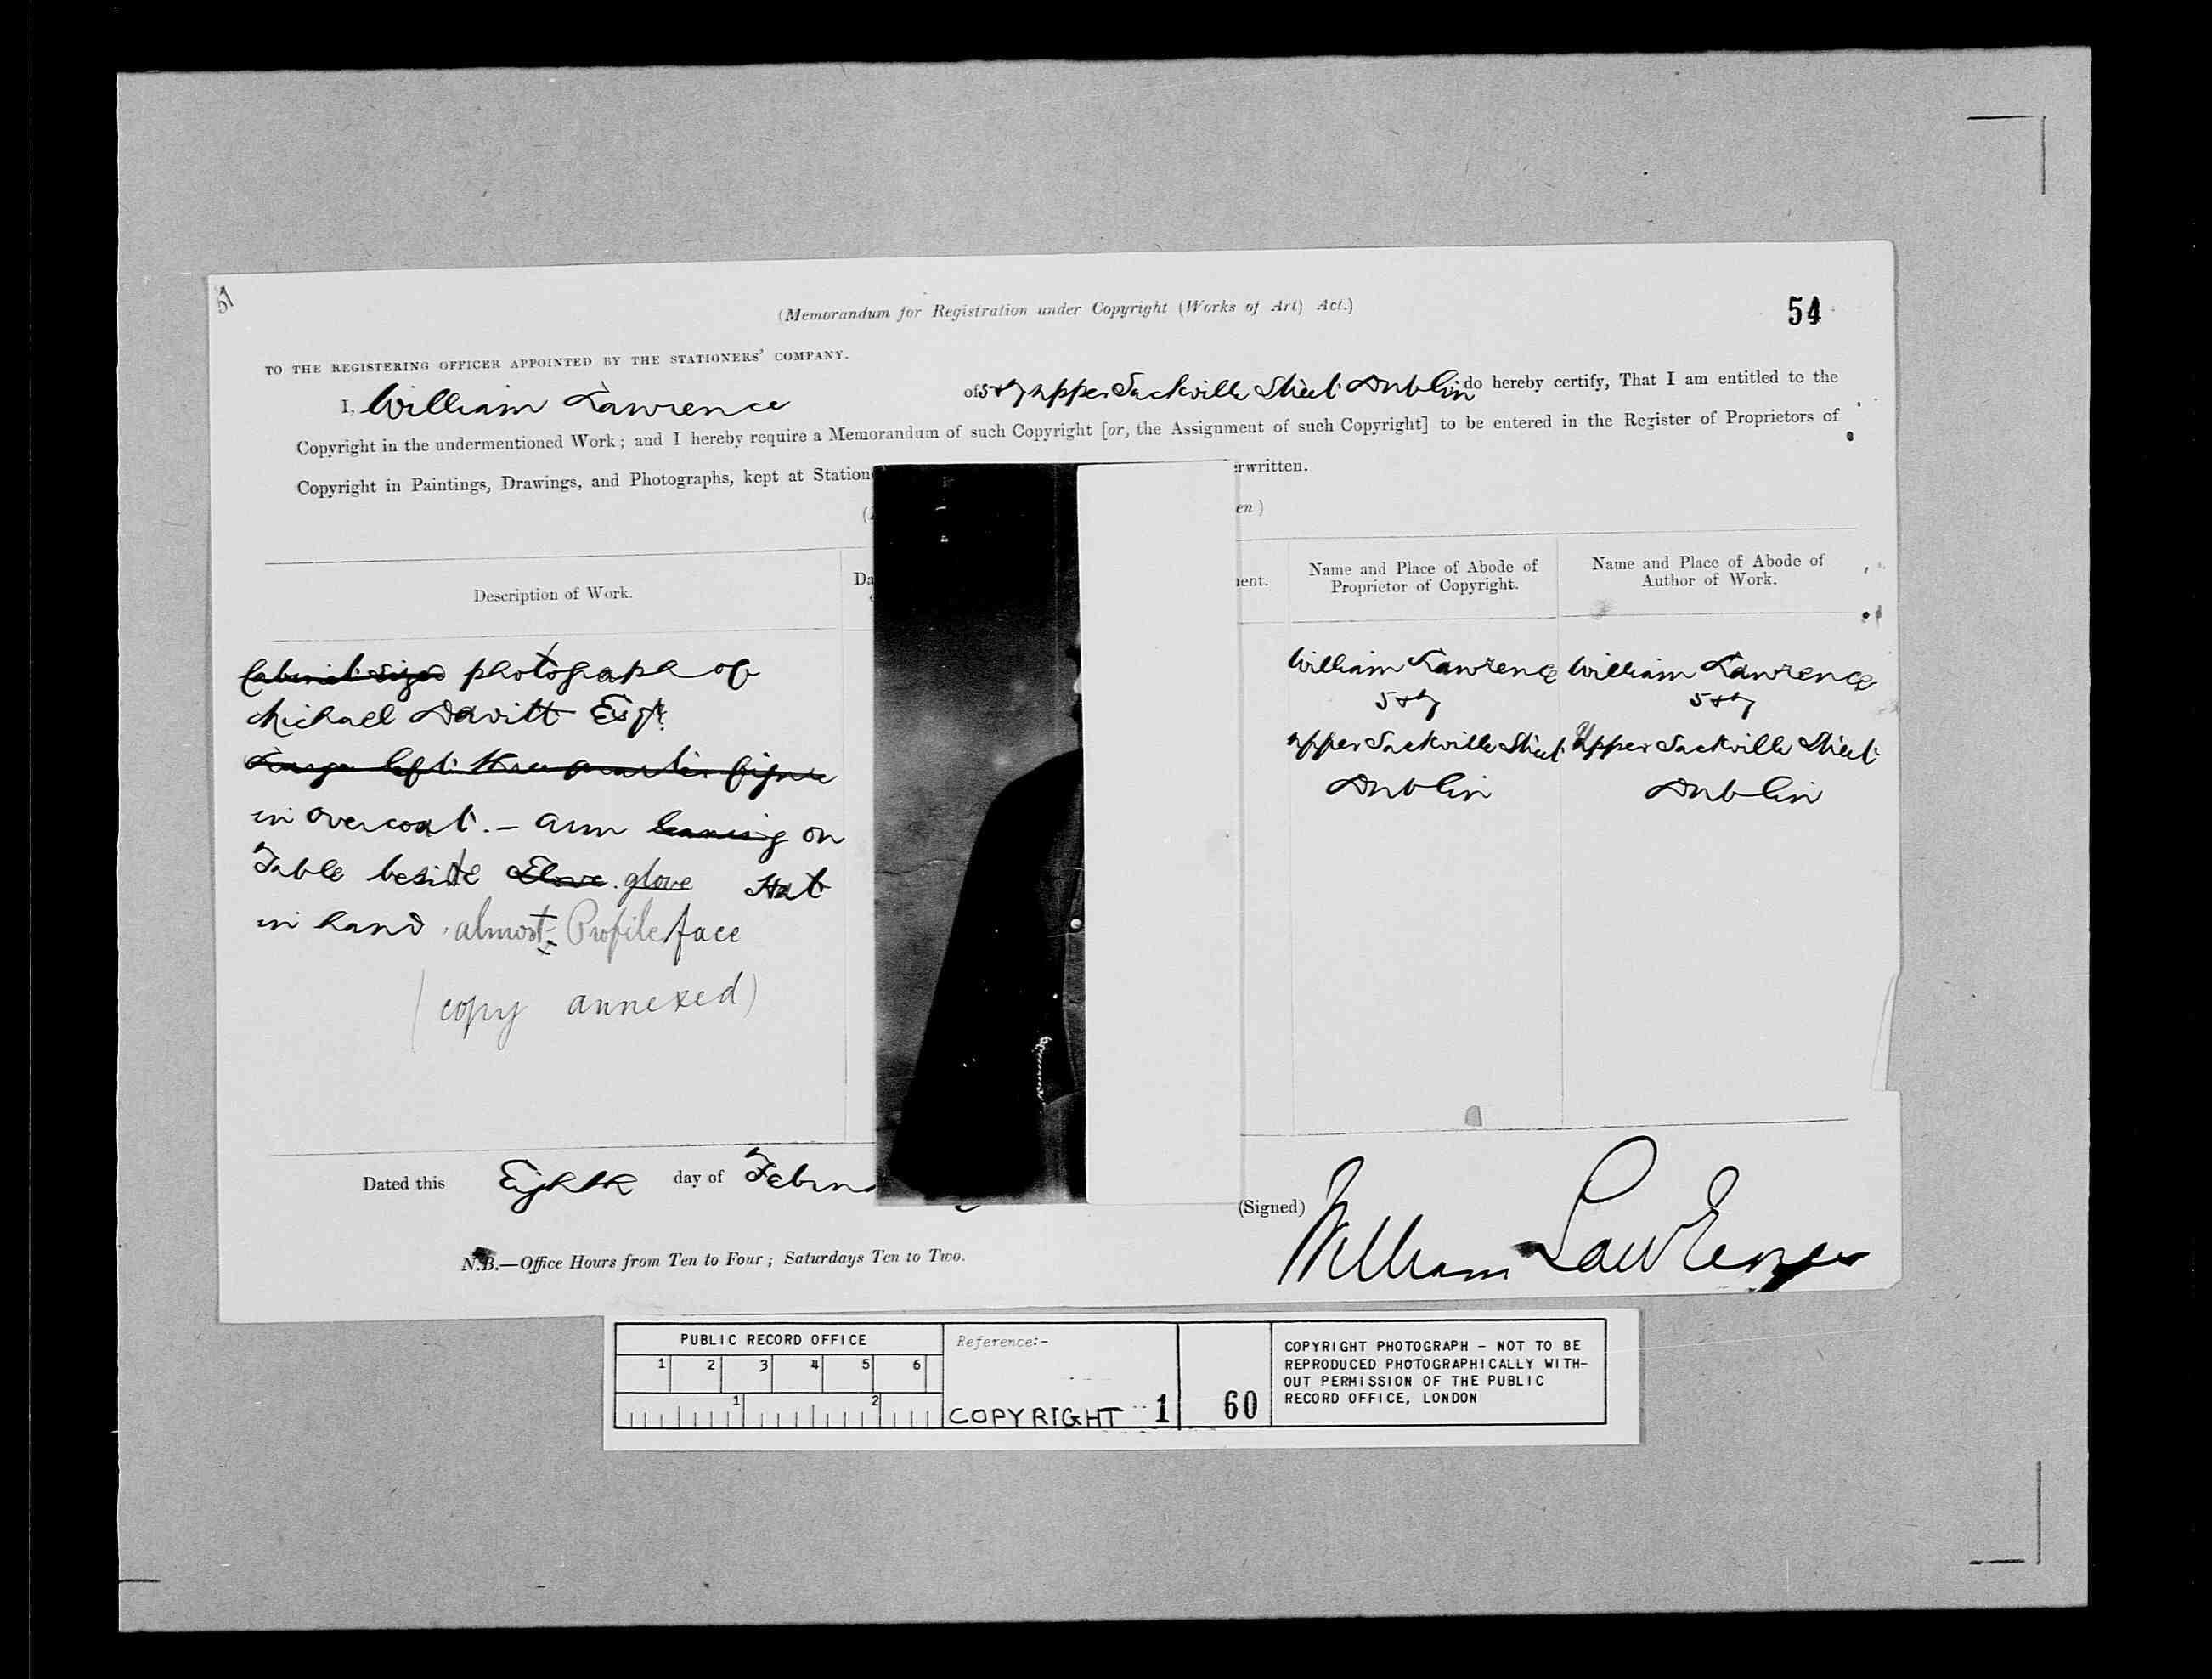 51
(Memorandum for Registration under Copyright (Works of Art) Act.)
54
TO THE REGISTERING OFFICER APPOINTED BY THE STATIONERS' COMPANY.
I, William Lawrence of 5 & 7 Upper Sackville Street Dublin do hereby certify, That I am entitled to the
Copyright in the undermentioned Work; and I hereby require a Memorandum of such Copyright [or, the Assignment of such Copyright] to be entered in the Register of Proprietors of
Copyright in Paintings, Drawings, and Photographs, kept at Station erwritten.
en)
Description of Work.
Da
ent.
Name and Place of Abode of
Proprietor of Copyright.
Name and Place of Abode of
Author of Work.
Cabinet sized photograph of
Michael Davitt Esqr.
Large left three quarter figure
in overcoat. – arm leaning on
Table beside Glove. glove Hat
in hand. almost Profile face
(copy annexed)
William Lawrence
5 & 7
Upper Sackville Street
Dublin
William Lawrence
5 & 7
Upper Sackville Street
Dublin
Dated this Eighth day of Febru
(Signed) William Lawrence
N.B.—Office Hours from Ten to Four; Saturdays Ten to Two.
PUBLIC RECORD OFFICE
1 2 3 4 5 6
1 2
Reference:-
COPYRIGHT 1 60
COPYRIGHT PHOTOGRAPH - NOT TO BE
REPRODUCED PHOTOGRAPHICALLY WITH-
OUT PERMISSION OF THE PUBLIC
RECORD OFFICE, LONDON